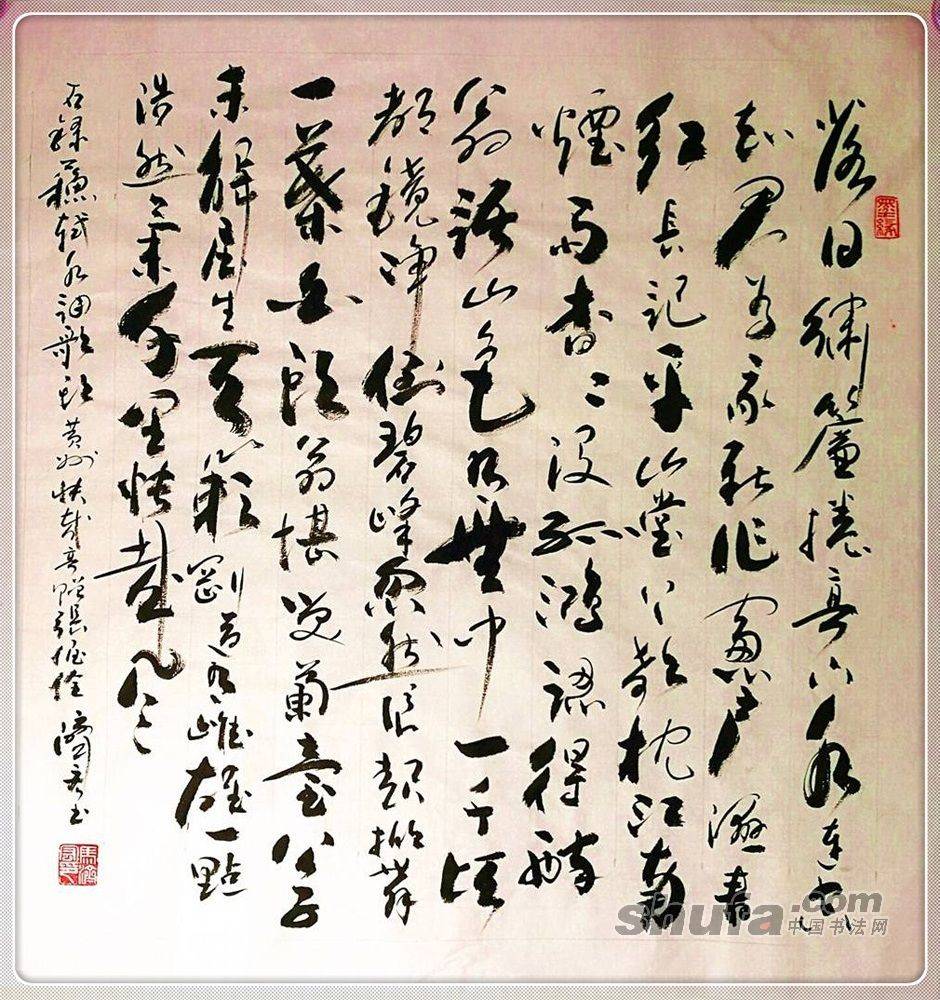 落日繡簾捲亭下水連空
知君为我新作窗户濕青
紅長記平山堂上欹枕江南
煙雨杳々没孤鴻認得醉
翁語山色有無中一千頃
都鏡净倒碧峰忽然浪起掀舞
一葉白頭翁堪笑蘭臺公子
未解庄生天籟剛道有雌雄一點
浩然氣千里快哉風
右録蘇軾水調歌頭黄州快哉亭贈張偓佺 濟书
墨缘
shufa.com
中国书法网